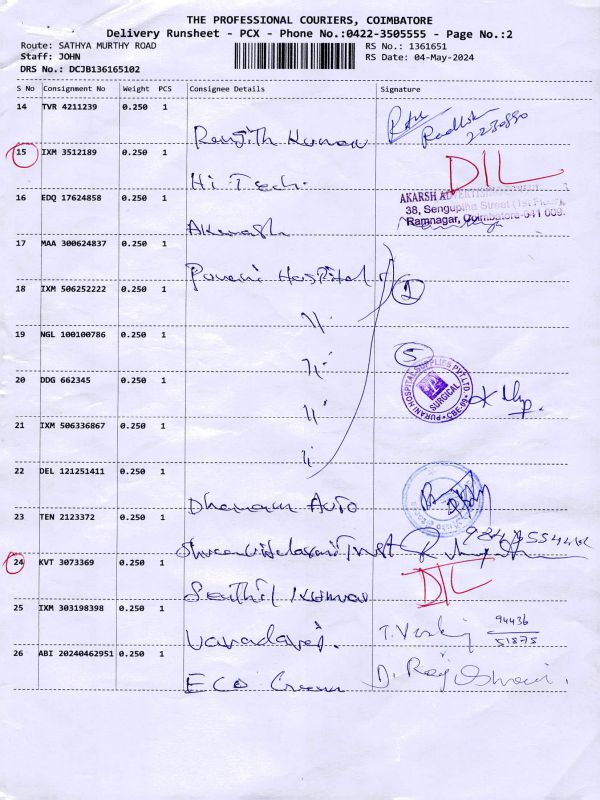 THE PROFESSIONAL COURIERS, COIMBATORE
Delivery Runsheet - PCX - Phone No.:0422-3505555 - Page No.:2
Route: SATHYA MURTHY ROAD
RS No.: 1361651
Staff: JOHN
RS Date: 04-May-2024
DRS No.: DCJB136165102
S No Consignment No Weight PCS Consignee Details Signature
14 TVR 4211239 0.250 1
Ranjith Kumar
15 IXM 3512189 0.250 1
Hi Tech DIL
16 EDQ 17624858 0.250 1
AKARSH
38, Senguptha Street (1st Floor),
Ramnagar, Coimbatore-641 009.
Akarash
17 MAA 300624837 0.250 1
Purani Hospital
18 IXM 506252222 0.250 1
〃
19 NGL 100100786 0.250 1
〃 5
20 DDG 662345 0.250 1
PURANI HOSPITAL SUPPLIES PVT.LTD.
SURGICAL
CBE-09
〃
21 IXM 506336867 0.250 1
〃
22 DEL 121251411 0.250 1
Dhanam Auto
23 TEN 2123372 0.250 1
Trust
24 KVT 3073369 0.250 1
Senthil Kumar DIL
25 IXM 303198398 0.250 1
Varadaraj. 94436
51875
26 ABI 20240462951 0.250 1
ECO Green D. Raj